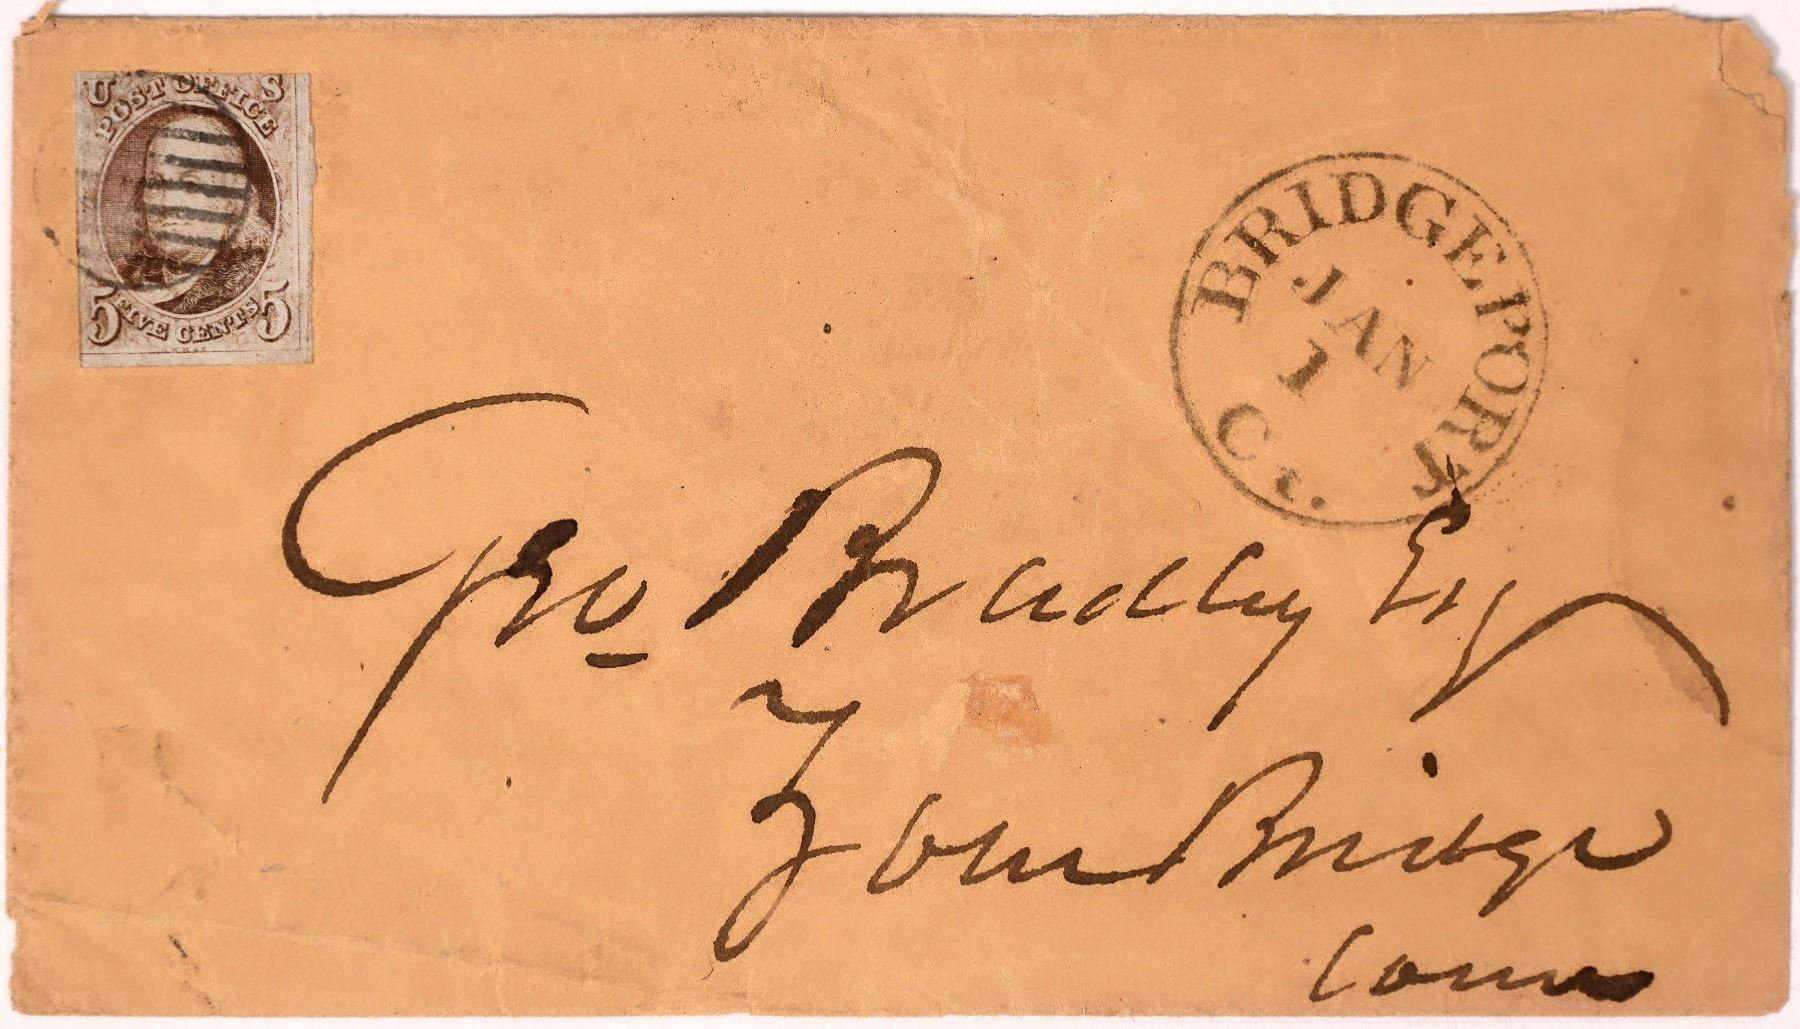 U S
POST OFFICE
5 FIVE CENTS 5
BRIDGEPORT
JAN
1
Ct.
Geo Bradley Esq
Zoar Bridge
Conn